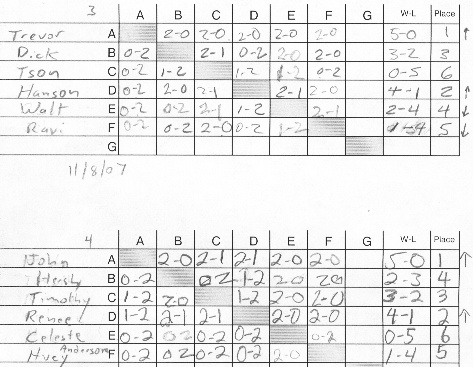 3 A B C D E F G W-L Place
Trevor A 2-0 2-0 2-0 2-0 2-0 5-0 1 ↑
Dick B 0-2 2-1 0-2 2-0 2-0 3-2 3
Tson C 0-2 1-2 1-2 1-2 0-2 0-5 6
Hanson D 0-2 2-0 2-1 2-1 2-0 4-1 2 ↑
Walt E 0-2 0-2 2-1 1-2 2-1 2-4 4 ↓
Ravi F 0-2 0-2 2-0 0-2 1-2 5 ↓
G
11/8/07
4 A B C D E F G W-L Place
John A 2-0 2-1 2-1 2-0 2-0 5-0 1 ↑
Hersby B 0-2 02 1-2 2-0 20 2-3 4
Timothy C 1-2 20 1-2 2-0 2-0 3-2 3
Renee D 1-2 2-1 2-1 2-0 2-0 4-1 2 ↑
Celeste E 0-2 02 0-2 0-2 0-2 0-5 6
Huey Anderson F 0-2 02 0-2 0-2 2-0 1-4 5